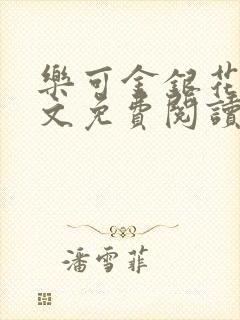 樂可金銀花
文免費閱讀
潘雪菲